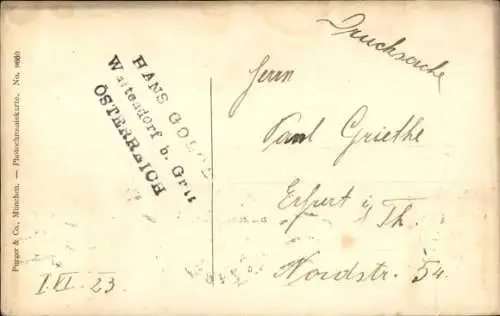 Purger & Co., München. — Photochromiekarte. No. 9660
HANS GOLO
b. Gr
ÖSTERREICH
I. VI. 23
Drucksache
Herrn
Paul Griethe
Erfurt i/Th.
Nordstr. 54.